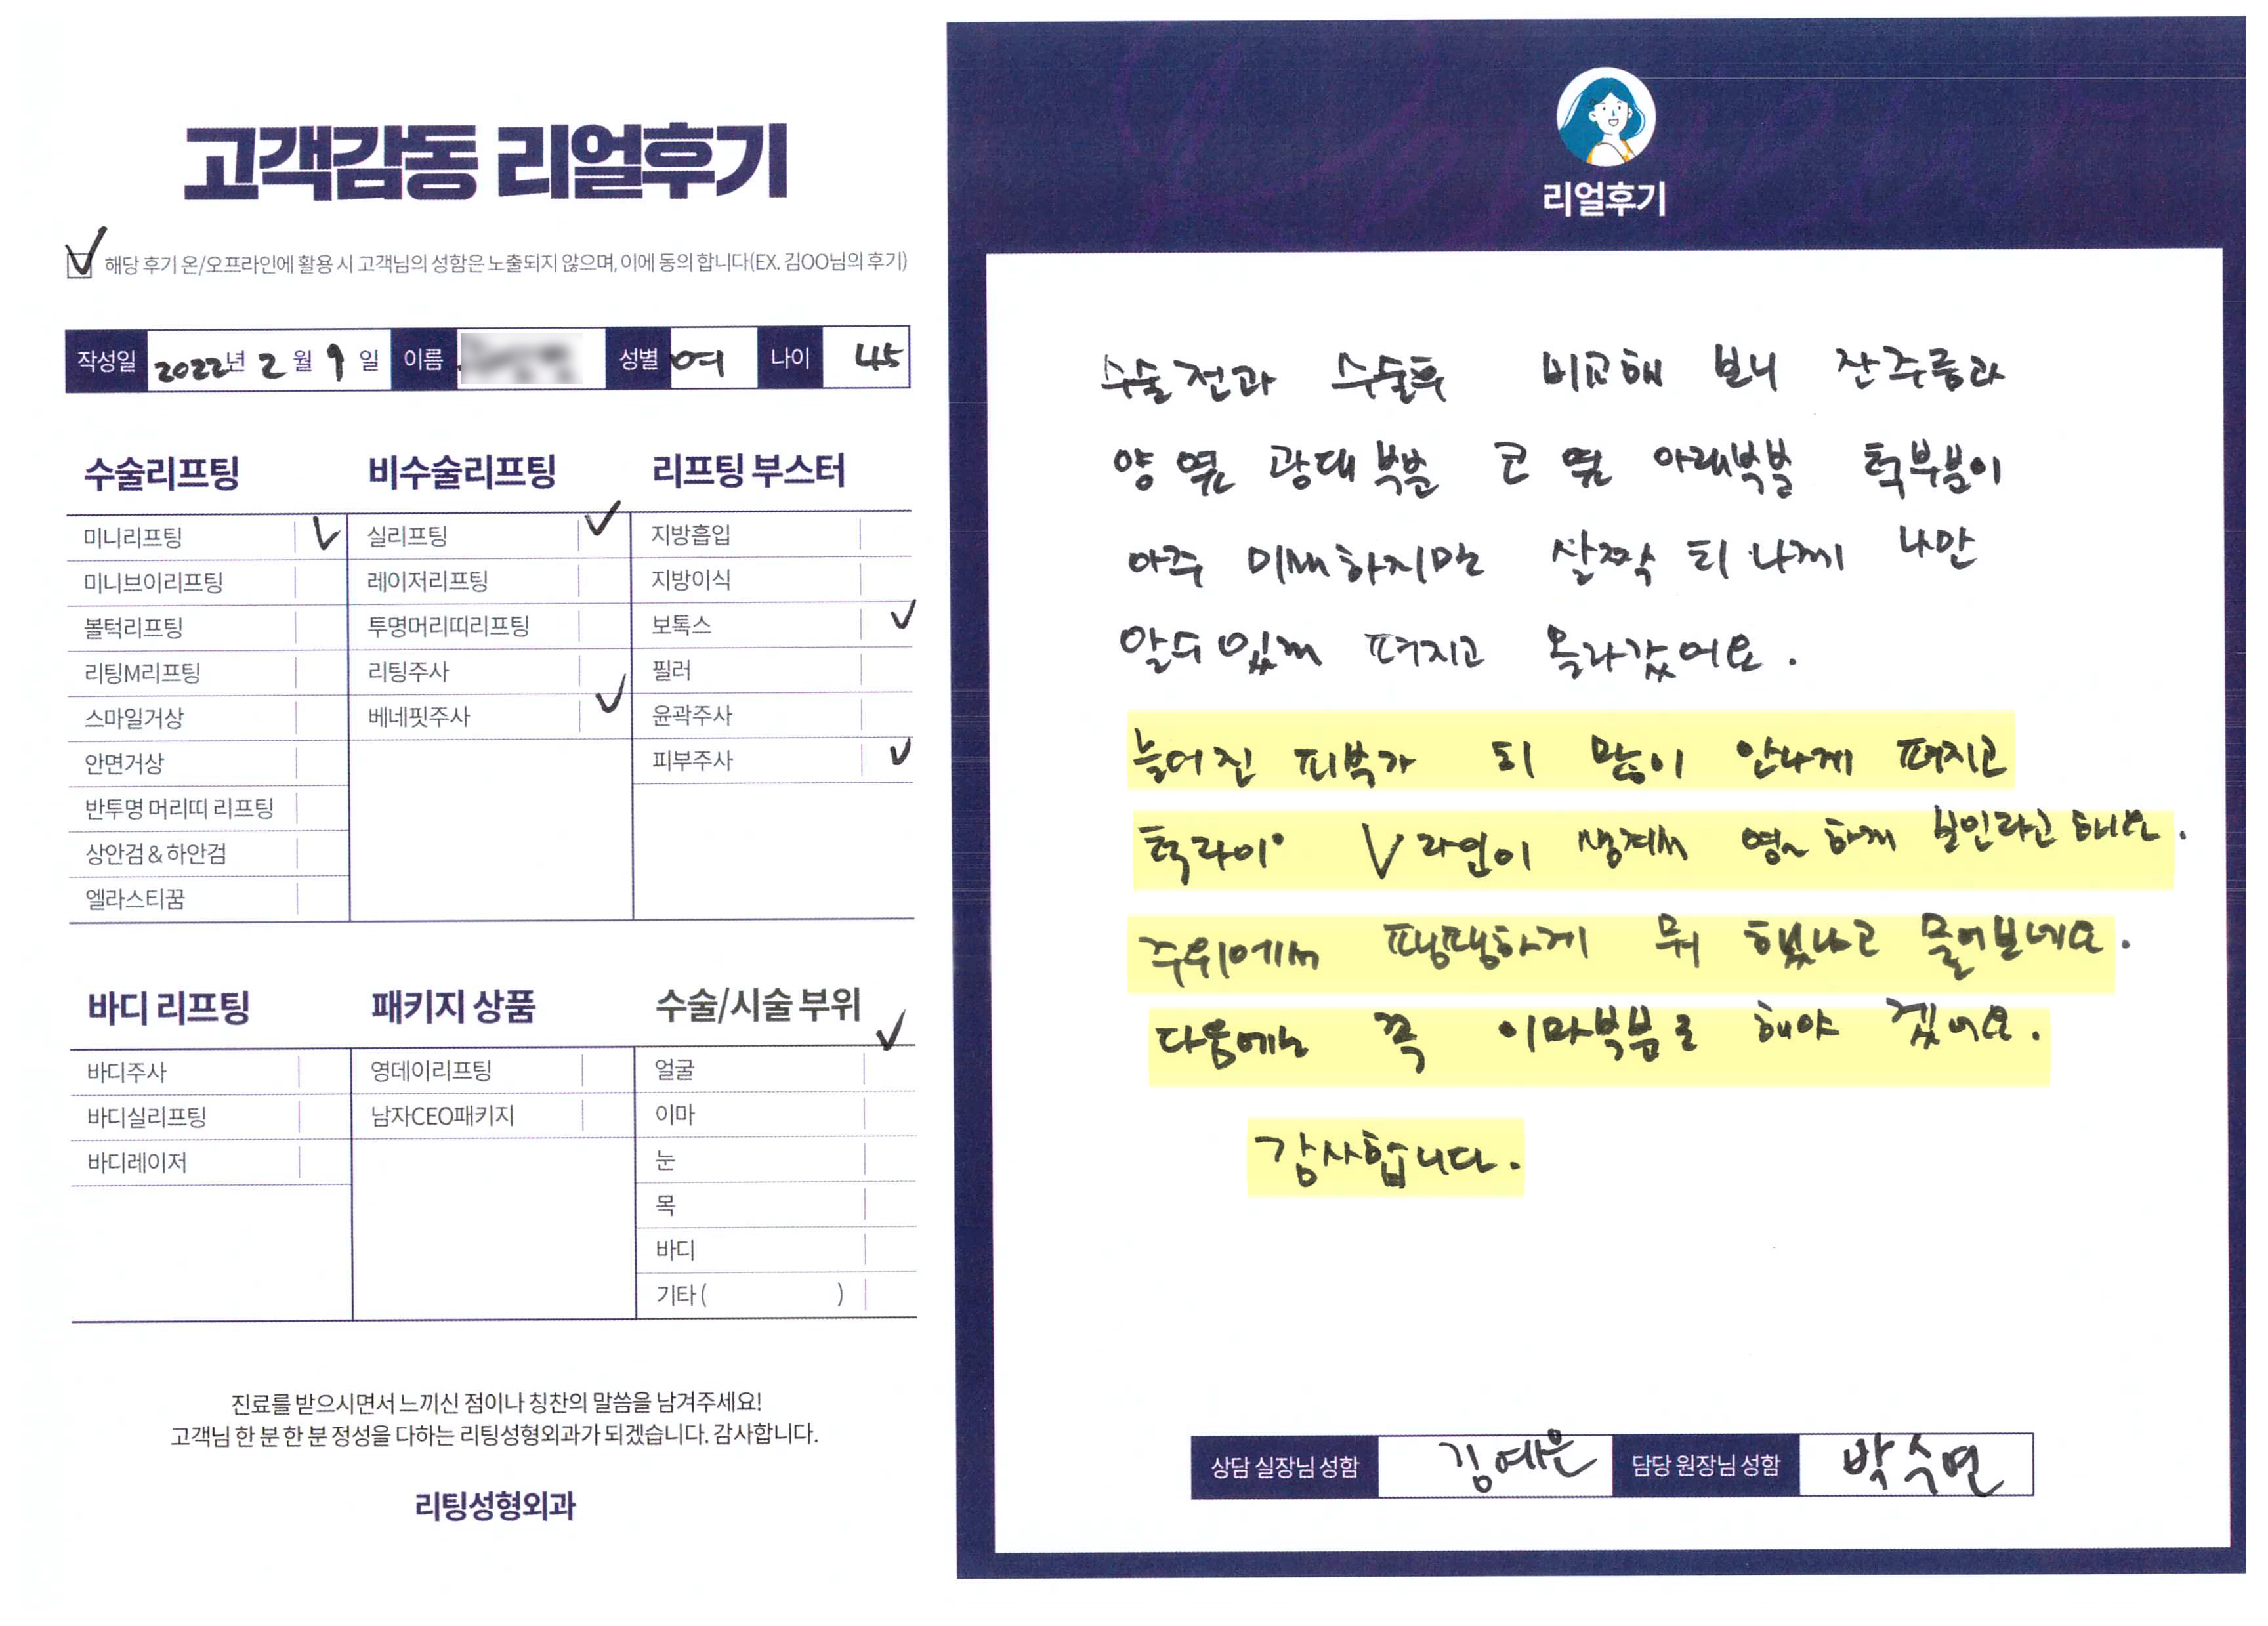 고객감동 리얼후기
해당 후기 온/오프라인에 활용 시 고객님의 성함은 노출되지 않으며, 이에 동의 합니다(EX. 김OO님의 후기)
작성일 2022년 2월 9일 이름 성별 여 나이 45
수술리프팅
미니리프팅
미니브이리프팅
볼턱리프팅
리팅M리프팅
스마일거상
안면거상
반투명 머리띠 리프팅
상안검 & 하안검
엘라스티꿈
비수술리프팅
실리프팅
레이저리프팅
투명머리띠리프팅
리팅주사
베네핏주사
리프팅 부스터
지방흡입
지방이식
보톡스
필러
윤곽주사
피부주사
바디 리프팅
바디주사
바디실리프팅
바디레이저
패키지 상품
영데이리프팅
남자CEO패키지
수술/시술 부위
얼굴
이마
눈
목
바디
기타 ( )
진료를 받으시면서 느끼신 점이나 칭찬의 말씀을 남겨주세요!
고객님 한 분 한 분 정성을 다하는 리팅성형외과가 되겠습니다. 감사합니다.
리팅성형외과
리얼후기
수술전과 수술후 비교해 보니 잔주름과
양 옆 광대부분 코 옆 아래부분 턱부분이
아주 미세하지만 살짝 티나게 나만
알수있게 펴지고 올라갔어요.
늘어진 피부가 티 많이 안나게 펴지고
V라인이 생겨서 영~하게 보인라고 해요.
주위에서 팽팽하게 뭐 했냐고 물어보네요.
다음에는 꼭 이마부분로 해야 겠어요.
감사합니다.
상담 실장님 성함 김예은 담당 원장님 성함 박수연